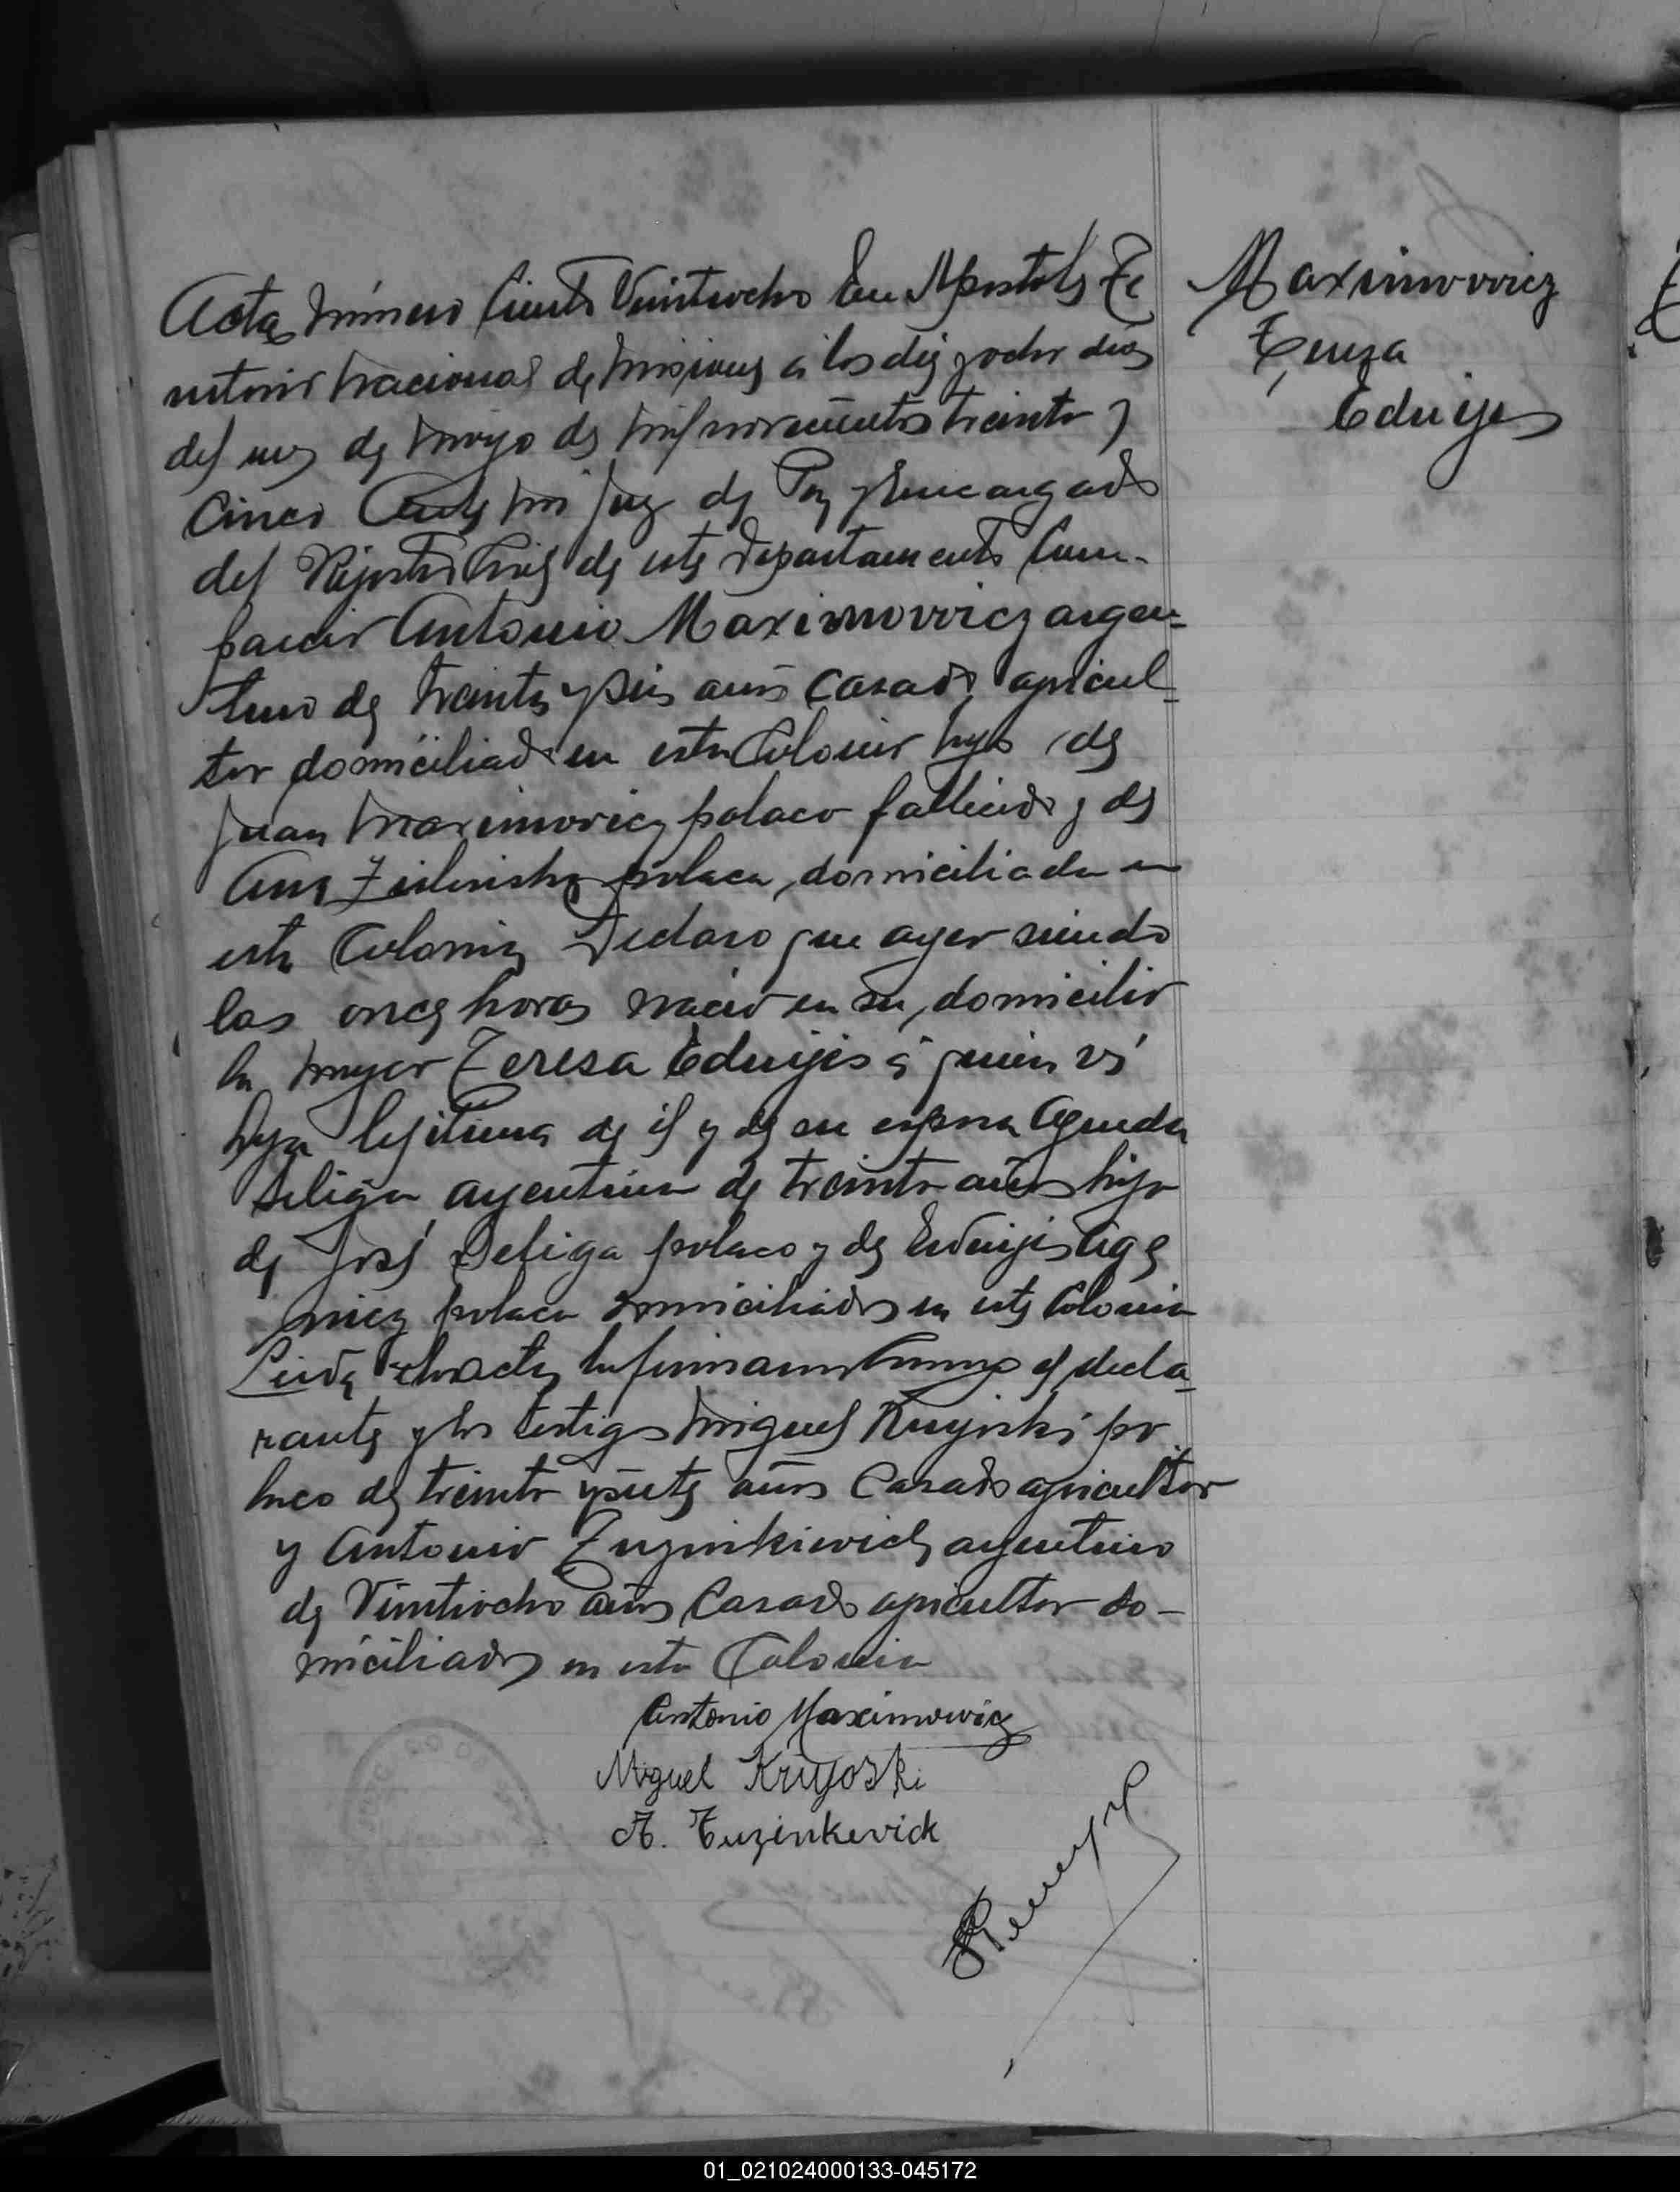 Acta número Ciento Veintiocho En Apostoles Te
rritorio Nacional de Misiones a los diez y ocho dias
del mes de Mayo de mil novecientos treinta y
Cinco Ante mi Juez de Paz y Encargado
del Rejistro Civil de este Departamento Com-
parecio Antonio Maximovvicz argen-
tino de treinta y seis años Casado agricul-
tor domiciliado en esta Colonia hijo de
Juan Maximovicz polaco fallecido y de
Ana polaca, domiciliada en
esta Colonia Declaro que ayer siendo
las once horas nacio en su domicilio
la mujer Teresa Eduijes á quien vi
hija lejitima de él y de su esposa Agueda
Seliga argentina de treinta años hija
de José Seliga polaco y de Eduijes
polaca domiciliados en esta Colonia
Leida el acta la firmaron conmigo el decla-
rante y los testigos Miguel po
laco de treinta y siete años Casado agricultor
y Antonio argentino
de Veintiocho años Casado agricultor do-
miciliados en esta Colonia
Antonio Maximowicz
Miguel Kruyoski
A. Tuzinkevich
Maximovvicz
Teresa
Eduijes
01_021024000133-045172